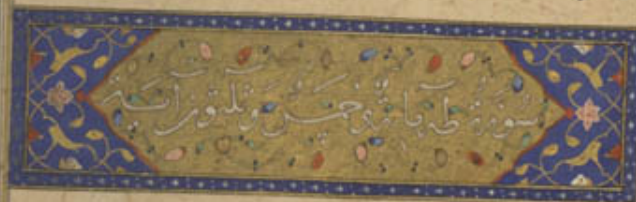 سورة طه مائة وخمس وثلثون آية